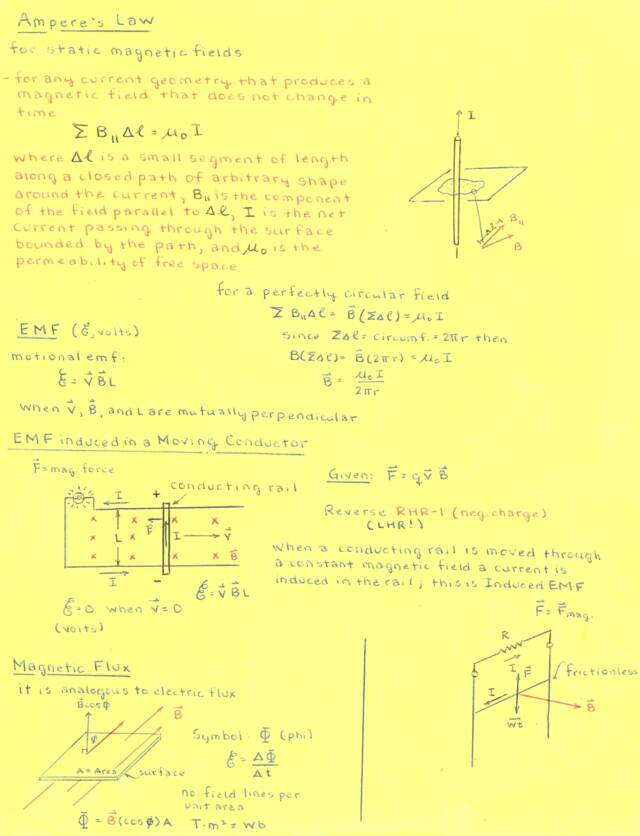 Ampere's Law
for static magnetic fields
- for any current geometry that produces a
magnetic field that does not change in
time
Σ B∥ Δl = μ₀ I
where Δl is a small segment of length
along a closed path of arbitrary shape
around the current, B∥ is the component
of the field parallel to Δl, I is the net
current passing through the surface
bounded by the path, and μ₀ is the
permeability of free space
I
Δl
B∥
B
for a perfectly circular field
Σ B∥ Δl = B⃗ (ΣΔl) = μ₀ I
since ΣΔl = circumf. = 2πr then
B(ΣΔl) = B⃗ (2πr) = μ₀ I
B⃗ = μ₀ I / 2πr
EMF (ℰ, volts)
motional emf:
ℰ = V⃗ B⃗ L
when V⃗, B⃗, and L are mutually perpendicular
EMF induced in a Moving Conductor
F⃗ = mag. force
conducting rail
I
+
L
F⃗
I
V⃗
B⃗
I
-
ℰ = V⃗ B⃗ L
ℰ = 0 when V⃗ = 0
(volts)
Given: F⃗ = q V⃗ B⃗
Reverse RHR-1 (neg. charge)
(LHR!)
when a conducting rail is moved through
a constant magnetic field a current is
induced in the rail; this is Induced EMF
F⃗ = F⃗mag.
R
I
F⃗
frictionless
I
B⃗
wt
Magnetic Flux
it is analogous to electric flux
B⃗cosφ
B⃗
φ
A = Area
surface
Symbol: Φ (phi)
ℰ = ΔΦ / Δt
no. field lines per
unit area
Φ = B⃗ (cosφ) A T·m² = Wb